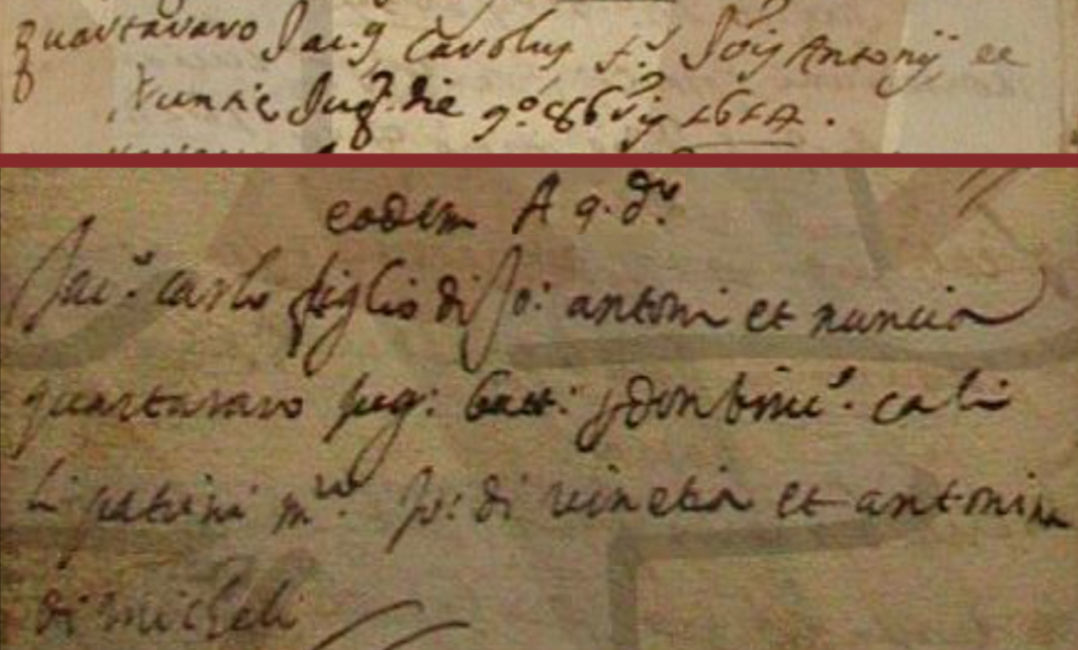 quartararo Jac.9 Carolus f. Jois Antonij et
Nuntie Jug. die 9.º 8bris 1617.
eodem A 9. d.
Jac.º carlo figlio di Jo: antoni et nuncia
quartararo jug: batt: p don binc.º cali
li patrini m.º Jo: di vinetia et antonina
di micheli